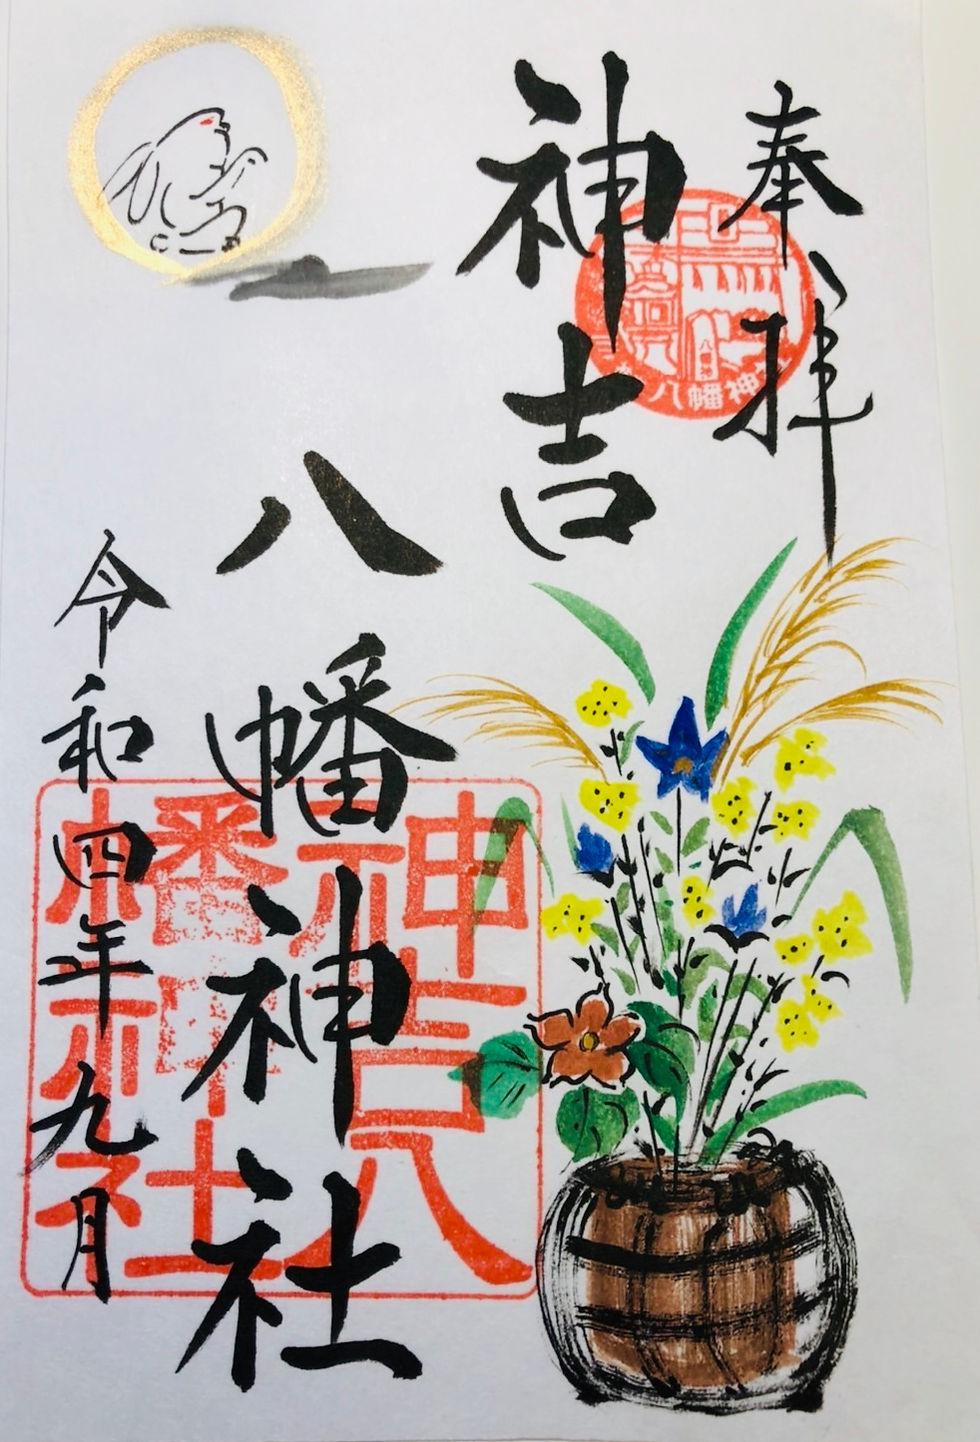 奉拝
神吉
八幡神社
令和四年九月
八幡神社
神吉八
幡神社